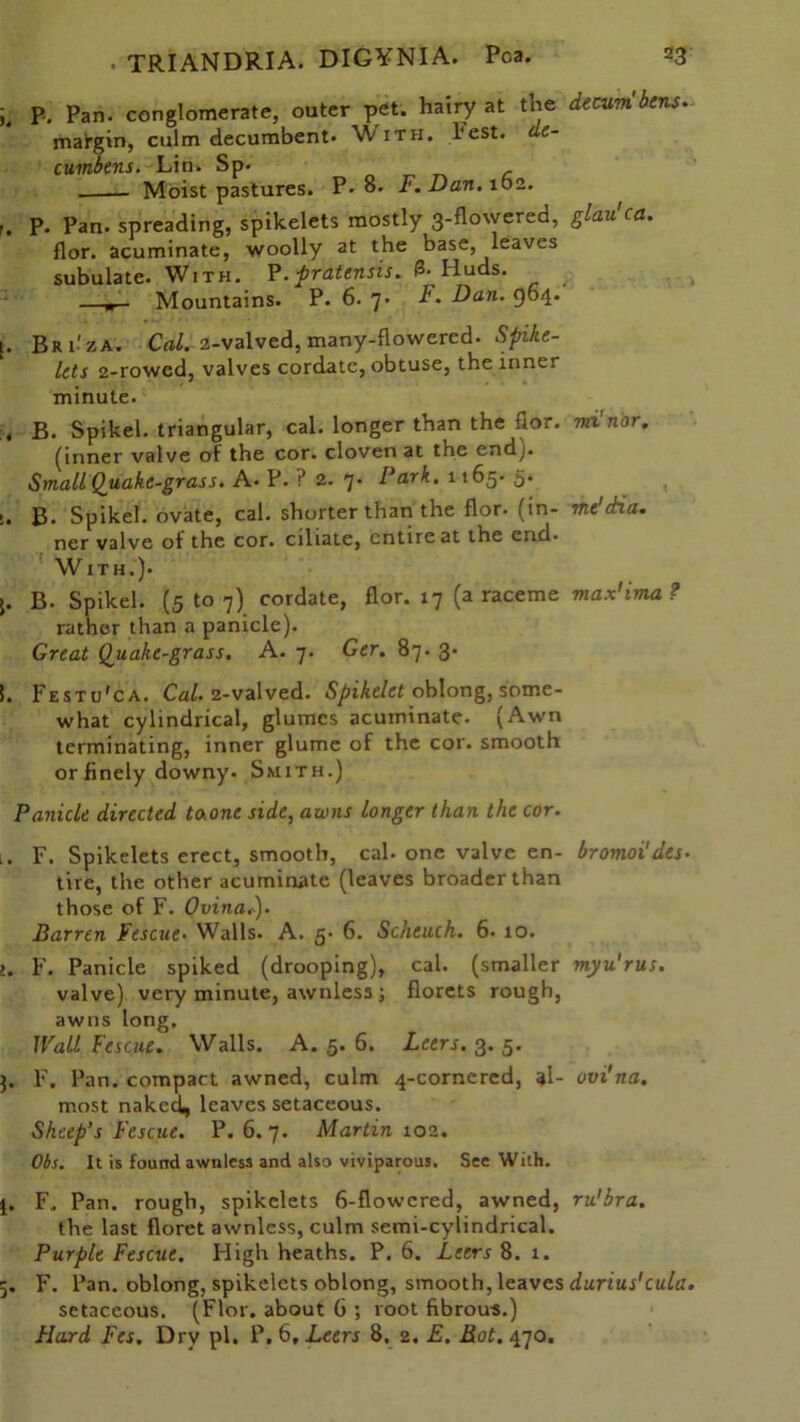 . TRIANDRIA. DIGYNIA. Poa. 23
P. Pan. conglomerate, outer pet. hairy at the decum'bens.
margin, culm decumbent. WITH. Fest. de-
cumbens. Lin. Sp.
—— Moist pastures. P. 8. F. Dan. 162.
P. Pan. spreading, spikelets mostly 3-flowered, glau'ca.
flor. acuminate, woolly at the base, leaves
subulate. WITH. P. pratensis. β. Huds.
—— Mountains. P. 6. 7. F. Dan. 964.
BRI'ZA. Cal. 2-valved, many-flowered. Spike-
lets 2-rowed, valves cordate, obtuse, the inner
minute.
B. Spikel. triangular, cal. longer than the flor. mi'nor.
(inner valve of the cor. cloven at the end).
Small Quake-grass. A. P. ? 2. 7. Park. 1165. 5.
B. Spikel. ovate, cal. shorter than the flor. (in- me'dia.
ner valve of the cor. ciliate, entire at the end.
WITH.).
B. Spikel. (5 to 7) cordate, flor. 17 (a raceme max'ima ?
rather than a panicle).
Great Quake-grass. A. 7. Ger. 87. 3.
FESTU'CA. Cal. 2-valved. Spikelet oblong, some-
what cylindrical, glumes acuminate. (Awn
terminating, inner glume of the cor. smooth
or finely downy. SMITH.)
Panicle directed to one side, awns longer than the cor.
F. Spikelets erect, smooth, cal. one valve en- bromoi'des.
tire, the other acuminate (leaves broader than
those of F. Ovina.).
Barren Fescue. Walls. A. 5. 6. Scheuch. 6. 10.
F. Panicle spiked (drooping), cal. (smaller myu'rus.
valve) very minute, awnless; florets rough,
awns long.
Wall Fescue. Walls. A. 5. 6. Leers. 3. 5.
F. Pan. compact awned, culm 4-cornered, al- ovi'na.
most naked, leaves setaceous.
Sheep's Fescue. P. 6. 7. Martin 102.
Obs. It is found awnless and also viviparous. See With.
F. Pan. rough, spikelets 6-flowered, awned, ru'bra.
the last floret awnless, culm semi-cylindrical.
Purple Fescue. High heaths. P. 6. Leers 8. 1.
F. Pan. oblong, spikelets oblong, smooth, leaves durius'cula.
setaceous. (Flor. about 6 ; root fibrous.)
Hard Fes. Dry pl. P. 6, Leers 8. 2. E. Bot. 470.